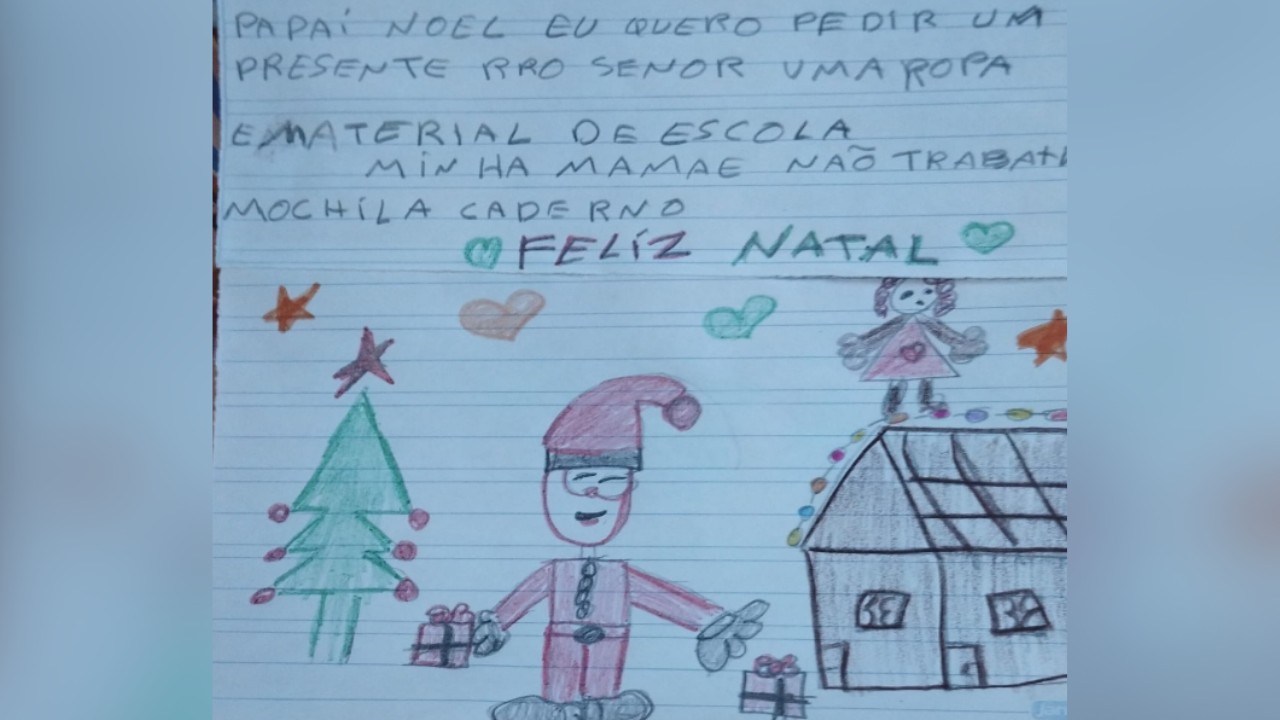 PAPAÍ NOEL EU QUERO PEDIR UM
PRESENTE PRO SENOR UMA ROPA
E MATERIAL DE ESCOLA
MINHA MAMAE NÃO
MOCHÍLA CADERNO
FELÍZ NATAL